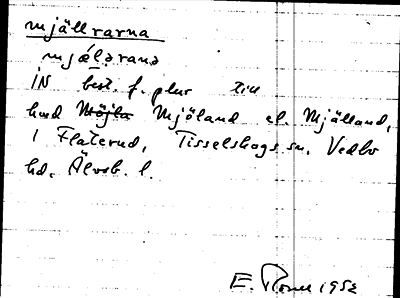 mjällrarna
mjǽlərana
IN best. f. plur till
hmd Möjla Mjöland el. Mjälland,
i Flaterud, Tisselskogs sn, Vedbo
hd, Älvsb. l.
E. 1952